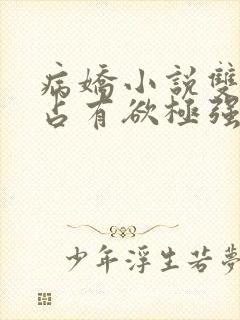 病嬌小説雙
占有欲極强
少年浮生若夢